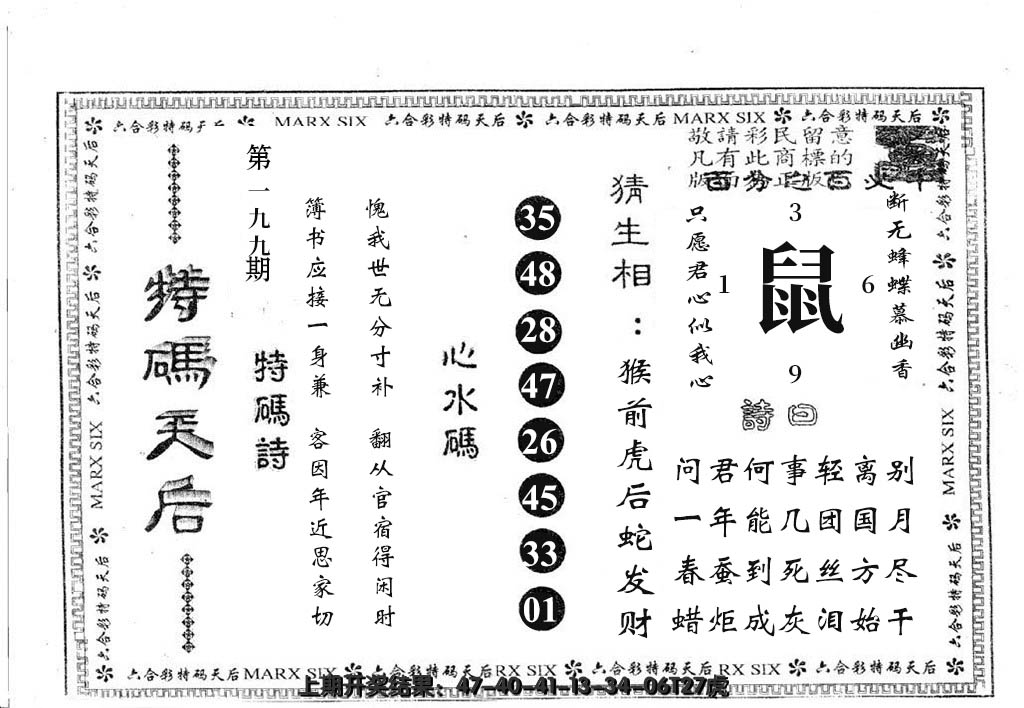 六合彩特码天后 MARX SIX 六合彩特码天后 六合彩特码天后 MARX SIX 六合彩特码天后
敬請彩民留意
凡有此商標的
版面为正版
特碼天后
第一九九期
特碼詩
簿书应接一身兼 客因年近思家切
愧我世无分寸补 翻从官宿得闲时
心水碼
35
48
28
47
26
45
33
01
猜生相：猴前虎后蛇发财
只愿君心似我心
3
1 鼠 6
9
断无蜂蝶慕幽香
詩曰
问君何事轻离别
一年能几团国月
春蚕到死丝方尽
蜡炬成灰泪始干
六合彩特码天后
六合彩特码天后
MARX SIX
六合彩特码天后
六合彩特码天后
六合彩特码天后
MARX SIX
六合彩特码天后
六合彩特码天后 MARX SIX 六合彩特码天后 RX SIX 六合彩特码天后 RX SIX 六合彩特码天后
上期开奖结果：47-40-41-13-34-06T27虎